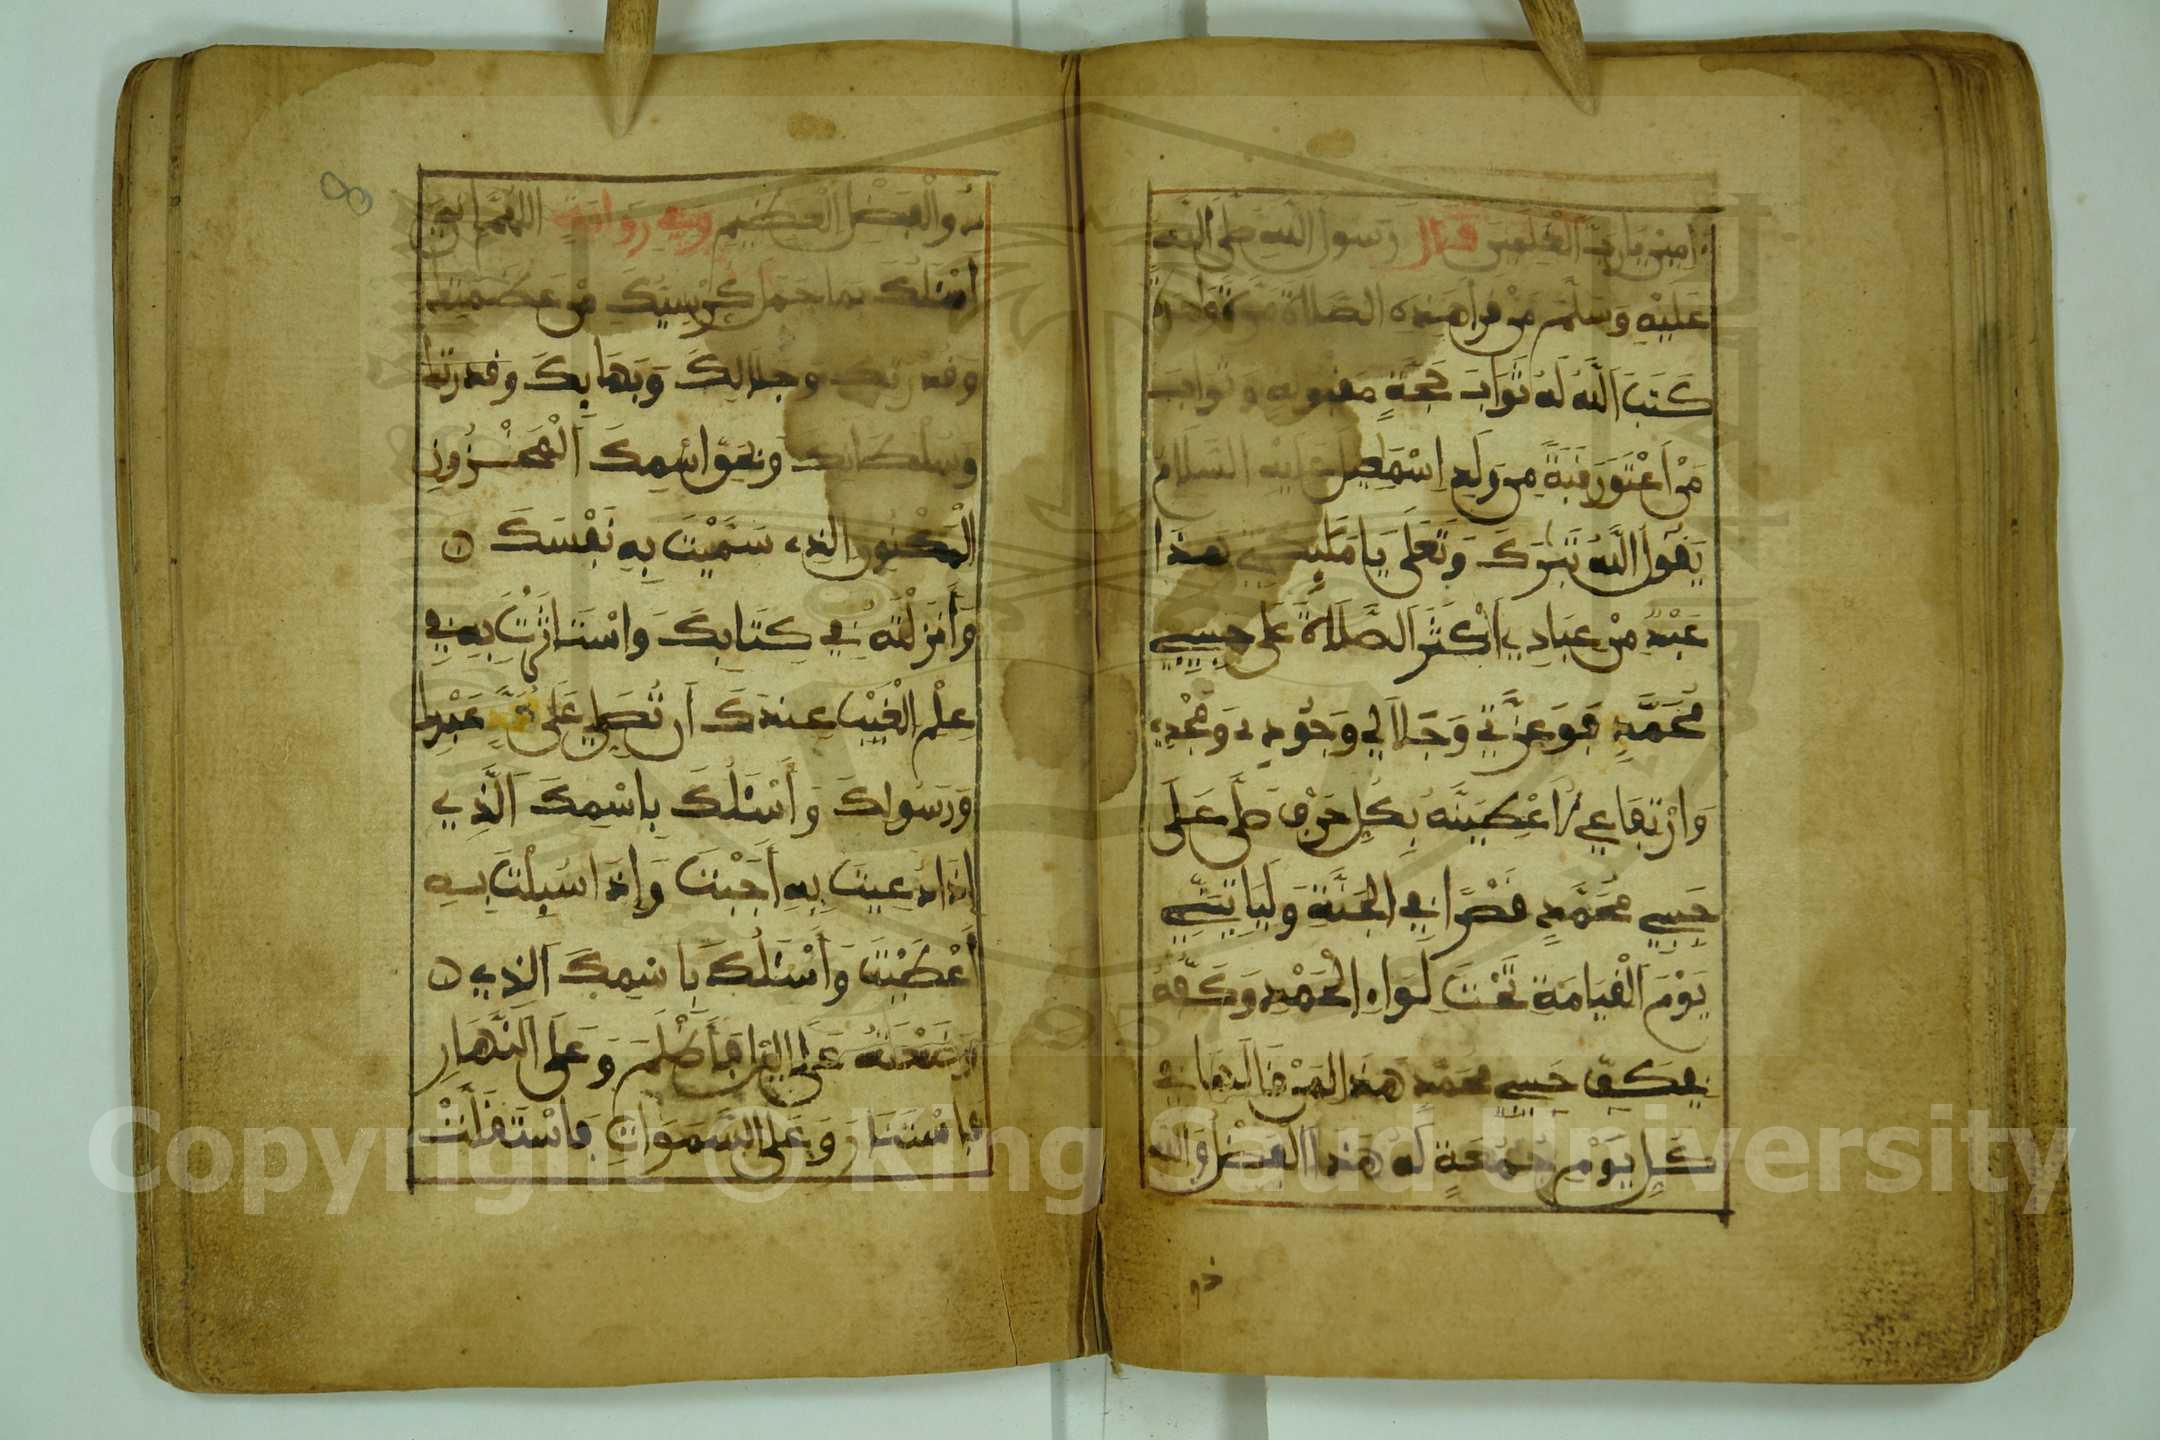 امين يا رب العلمين قال رسول الله صلى الله
عليه وسلم من قرا هذه الصلاة مرة واحدة
كتب الله له ثواب حجة مقبولة وثواب
من اعتق رقبة من ولد اسمعيل عليه السلام
يقول الله تبرك وتعلى يا مليكتي هذا
عبد من عبادي اكثر الصلاة على حبيبي
محمد فوعزتي وجلالي وجودي ومجدي
وارتفاعي لاعطينه بكل حرف صلى على
حبيبي محمد قصرا في الجنة ولياتيني
يوم القيامة تحت لواء الحمد وكفه
في كف حبيبي محمد هذا لمن قالها في
كل يوم جمعة له هذا الفضل والله
ذو
ذو الفضل العظيم وفي رواية اللهم اني
اسئلك بما حمل كرسيك من عظمتك
وقدرتك وجلالك وبهايك وقدرتك
وسلطانك وبحق اسمك المخزون
المكنون الذي سميت به نفسك
وانزلته في كتابك واستاثرت به في
علم الغيب عندك ان تصلي على محمد عبدك
ورسولك واسئلك باسمك الذي
اذا دعيت به اجبت واذا سيلت به
اعطيت واسئلك باسمك الذي
وضعته على اليل فاظلم وعلى النهار
فاستنار وعلى السموات فاستقلت
Copyright © King Saud University
1957